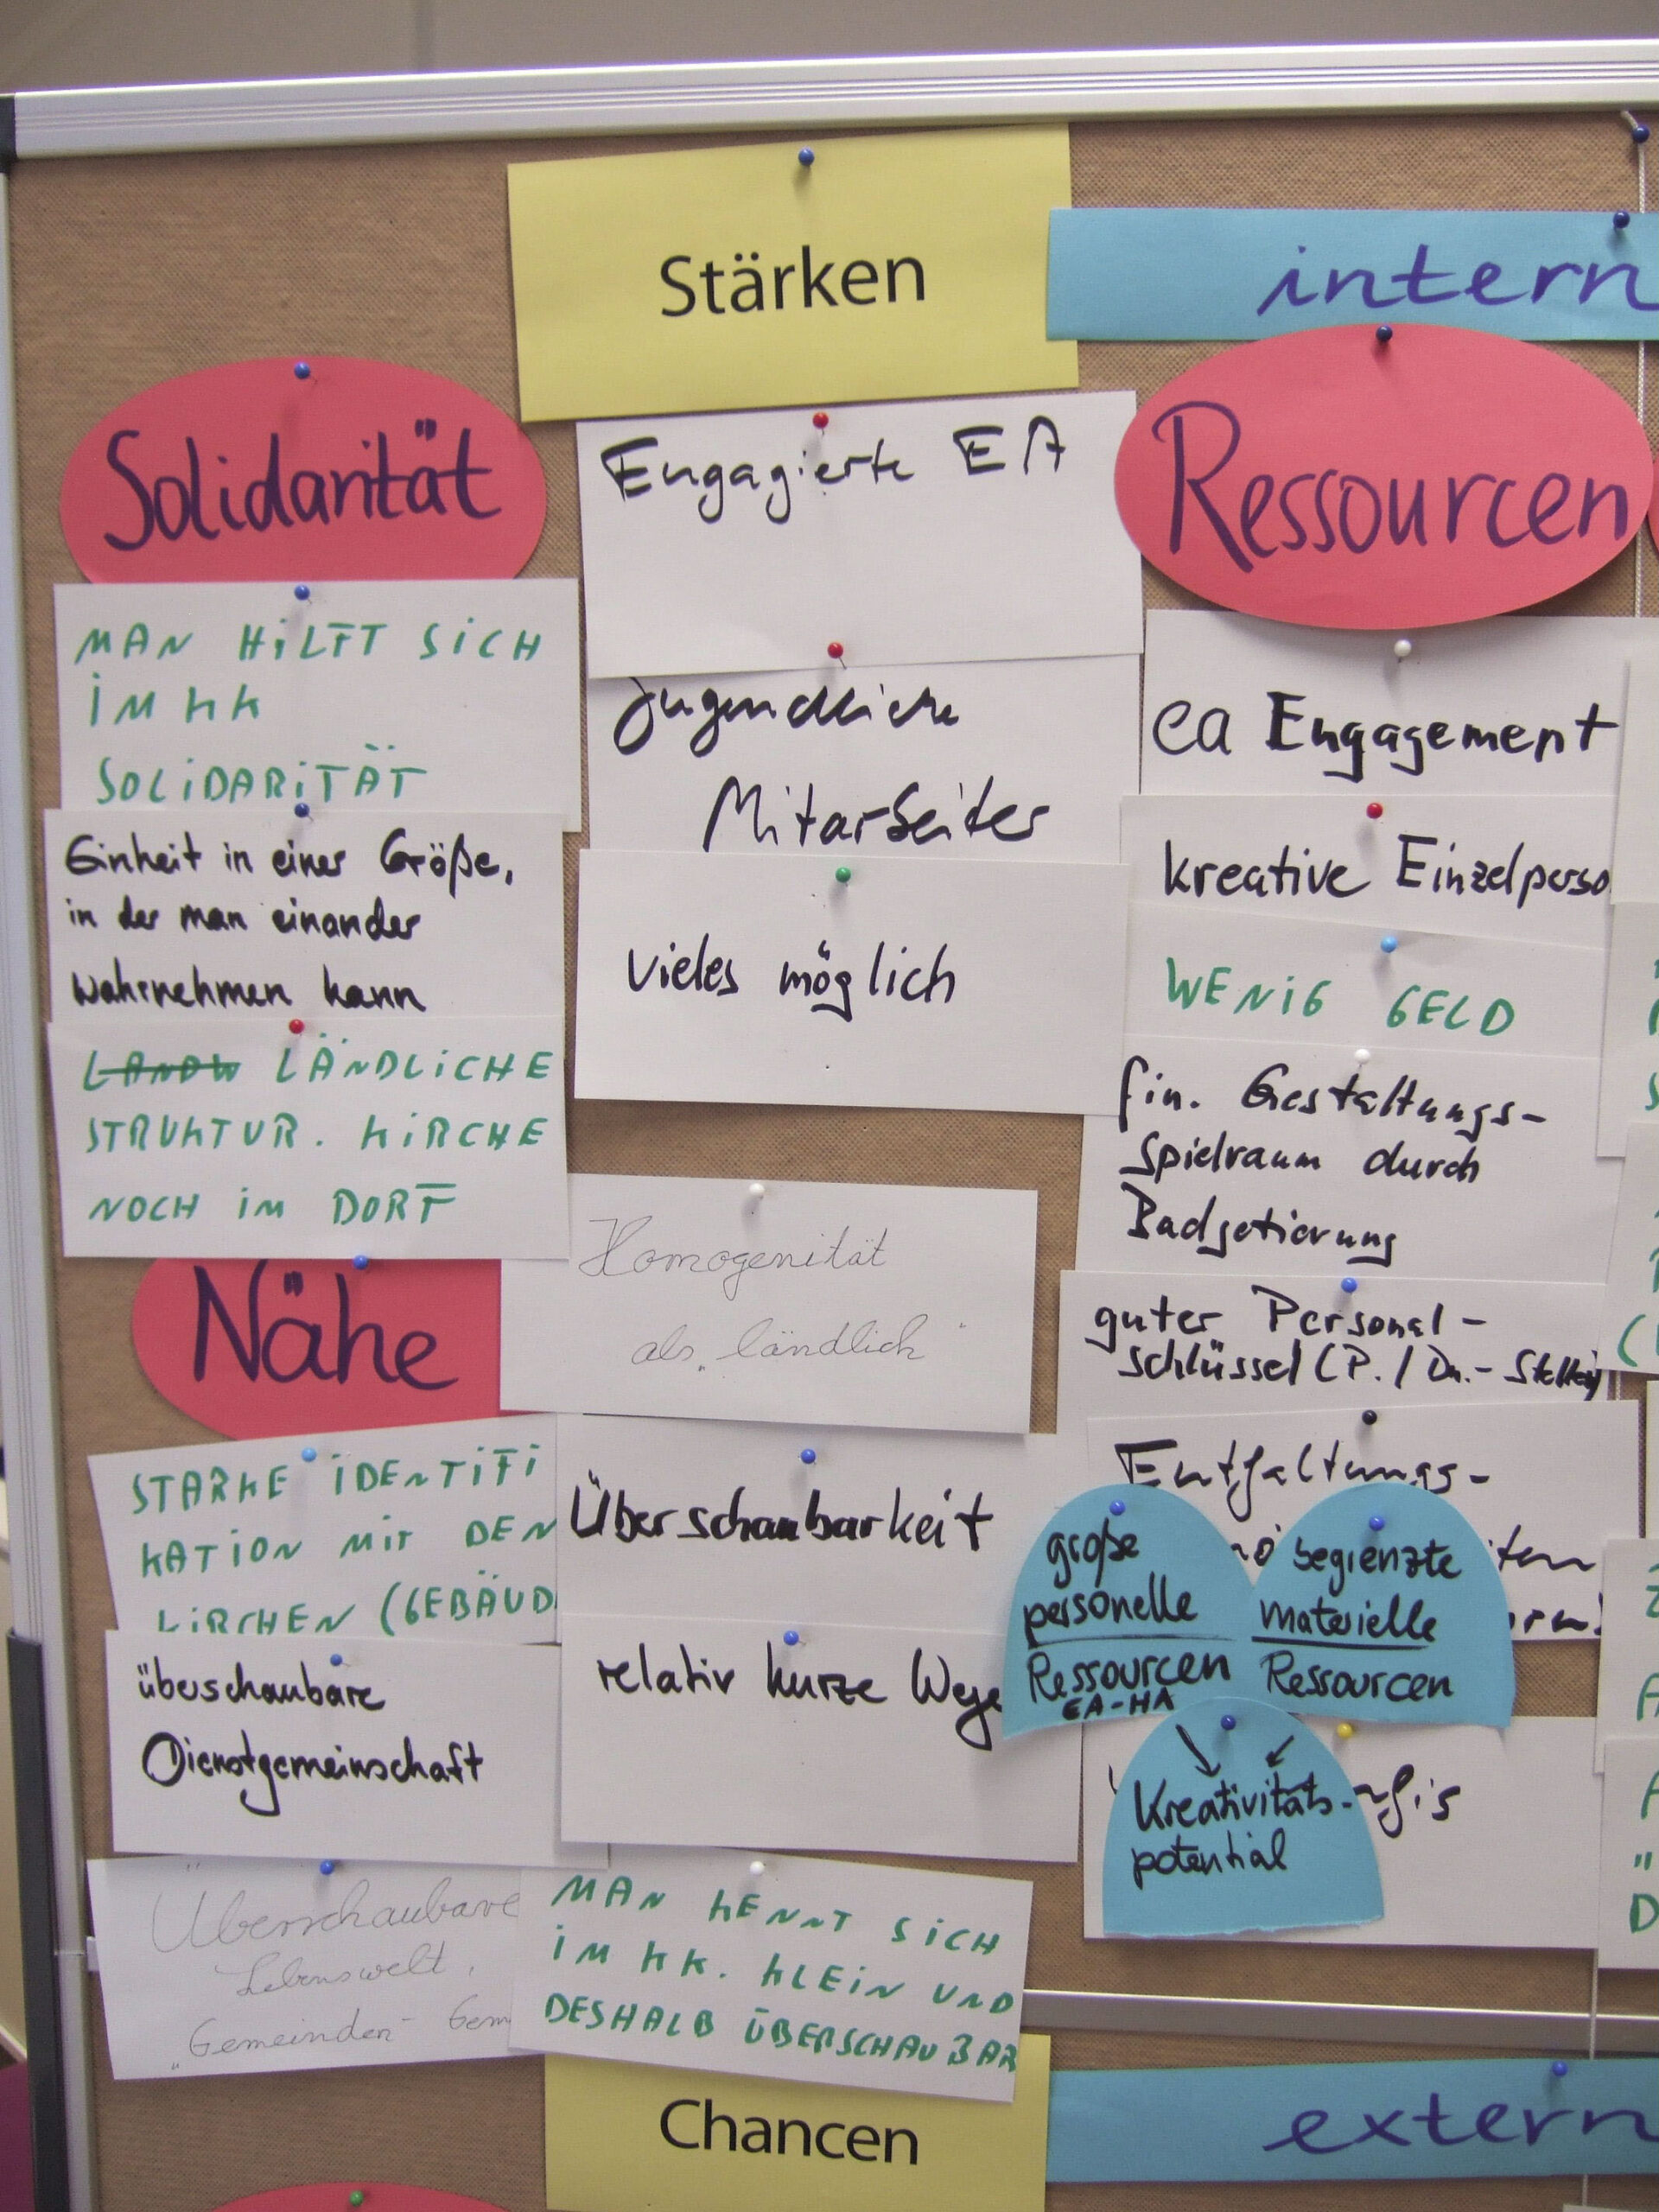 Stärken
intern
Solidarität
MAN HiLFT SiCH
iM KK
SOLiDARiTÄT
Einheit in einer Größe,
in der man einander
wahrnehmen kann
LANDW LÄNDLiCHE
STRUKTUR. KiRCHE
NOCH iM DORF
Nähe
STARKE iDENTiFi
KATiON MiT DEN
KiRCHEN (GEBÄUD
überschaubare
Dienstgemeinschaft
Überschaubare
Lebenswelt,
„Gemeinden- Gem
Engagierte EA
Jugendliche
Mitarbeiter
vieles möglich
Homogenität
als „ländlich"
Überschaubarkeit
relativ kurze Wege
MAN KENNT SiCH
iM KK. KLEiN UND
DESHALB ÜBERSCHAUBAR
Ressourcen
ea Engagement
kreative Einzelperso
WENiG GELD
fin. Gestaltungs-
spielraum durch
Badgetierung
guter Personal-
schlüssel (P. / Dn.- Stellen)
Entfaltungs-
große
personelle
Ressourcen
EA-HA
begrenzte
materielle
Ressourcen
Kreativitäts-
potential
Chancen
extern